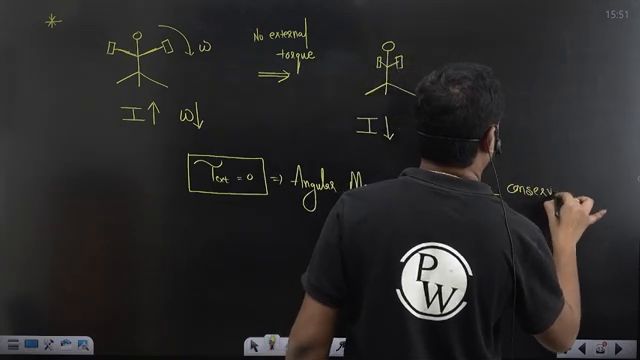 15:51
*
ω
No external
torque
⇒
I↑ ω↓
I↓
τext = 0 ⇒ Angular conserv
PW